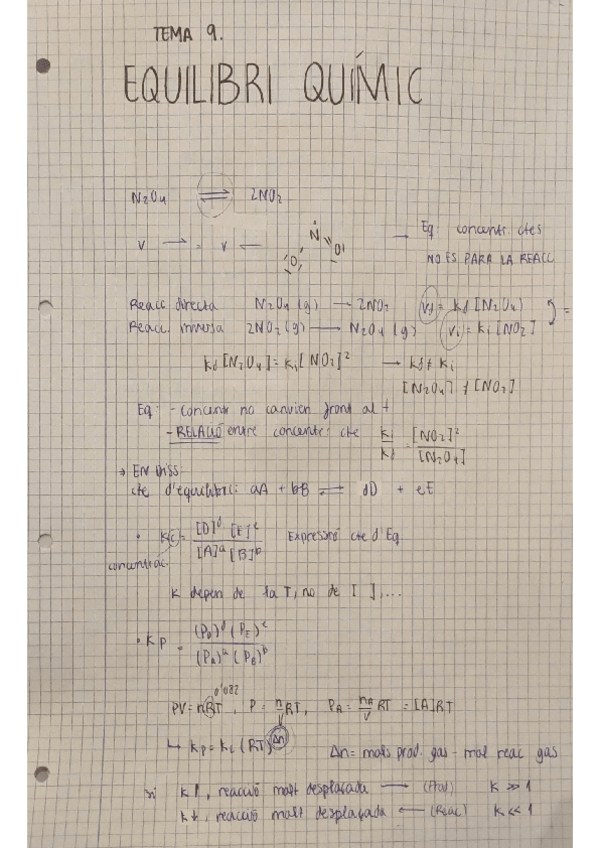 TEMA 9.
EQUILIBRI QUÍMIC
N₂O₄ ⇌ 2NO₂
V → = V ←
N O O → Eq: concentr. ctes
NO ES PARA LA REACC
Reacc directa N₂O₄ (g) → 2NO₂ Vd = kd [N₂O₄]
Reacc. inversa 2NO₂ (g) → N₂O₄ (g) Vi = ki [NO₂] =
kd [N₂O₄] = ki [NO₂]² → kd ≠ ki
[N₂O₄] ≠ [NO₂]
Eq: - concentr no canvien front al t
- RELACIÓ entre concentr: cte ki/kd = [NO₂]²/[N₂O₄]
→ EN DISS:
cte d'equilibri: aA + bB ⇌ dD + eE
• Kc = [D]ᵈ [E]ᵉ / [A]ᵃ [B]ᵇ Expressió cte d'Eq
concentrac.
K depen de la T, no de [ ], ...
• Kp = (P_D)ᵈ (P_E)ᵉ / (P_A)ᵃ (P_B)ᵇ
0'082
PV = nRT, P = n/V RT, P_A = n_A/V RT = [A]RT
↳ Kp = Kc (RT)^Δn Δn = mols prod. gas - mol reac gas
si K↑, reacció molt desplaçada → (Prod) K ≫ 1
K↓, reacció molt desplaçada ← (Reac) K ≪ 1